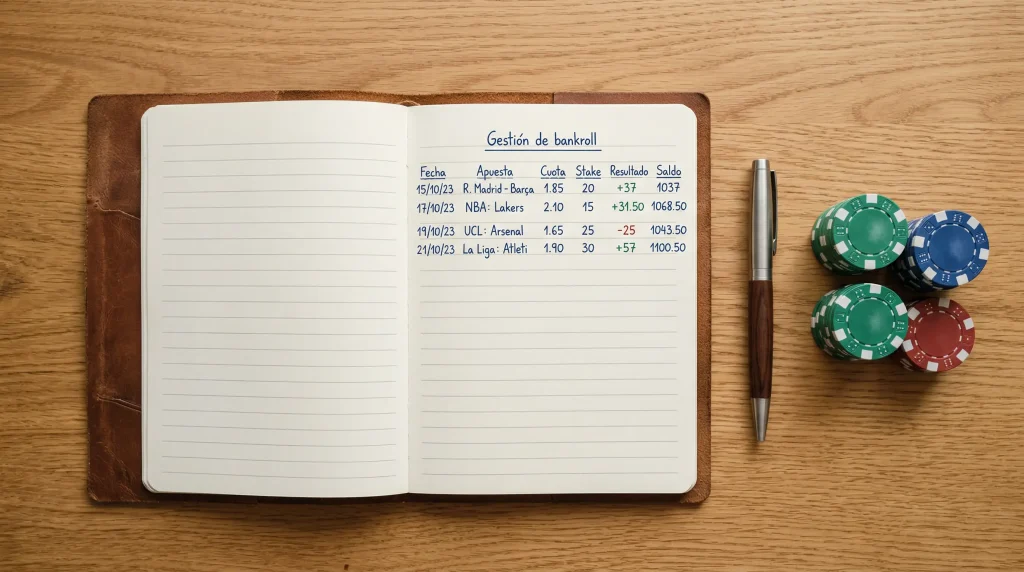 Gestión de bankroll
Fecha Apuesta Cuota Stake Resultado Saldo
15/10/23 R. Madrid - Barça 1.85 20 +37 1037
17/10/23 NBA: Lakers 2.10 15 +31.50 1068.50
19/10/23 UCL: Arsenal 1.65 25 -25 1043.50
21/10/23 La Liga: Atleti 1.90 30 +57 1100.50